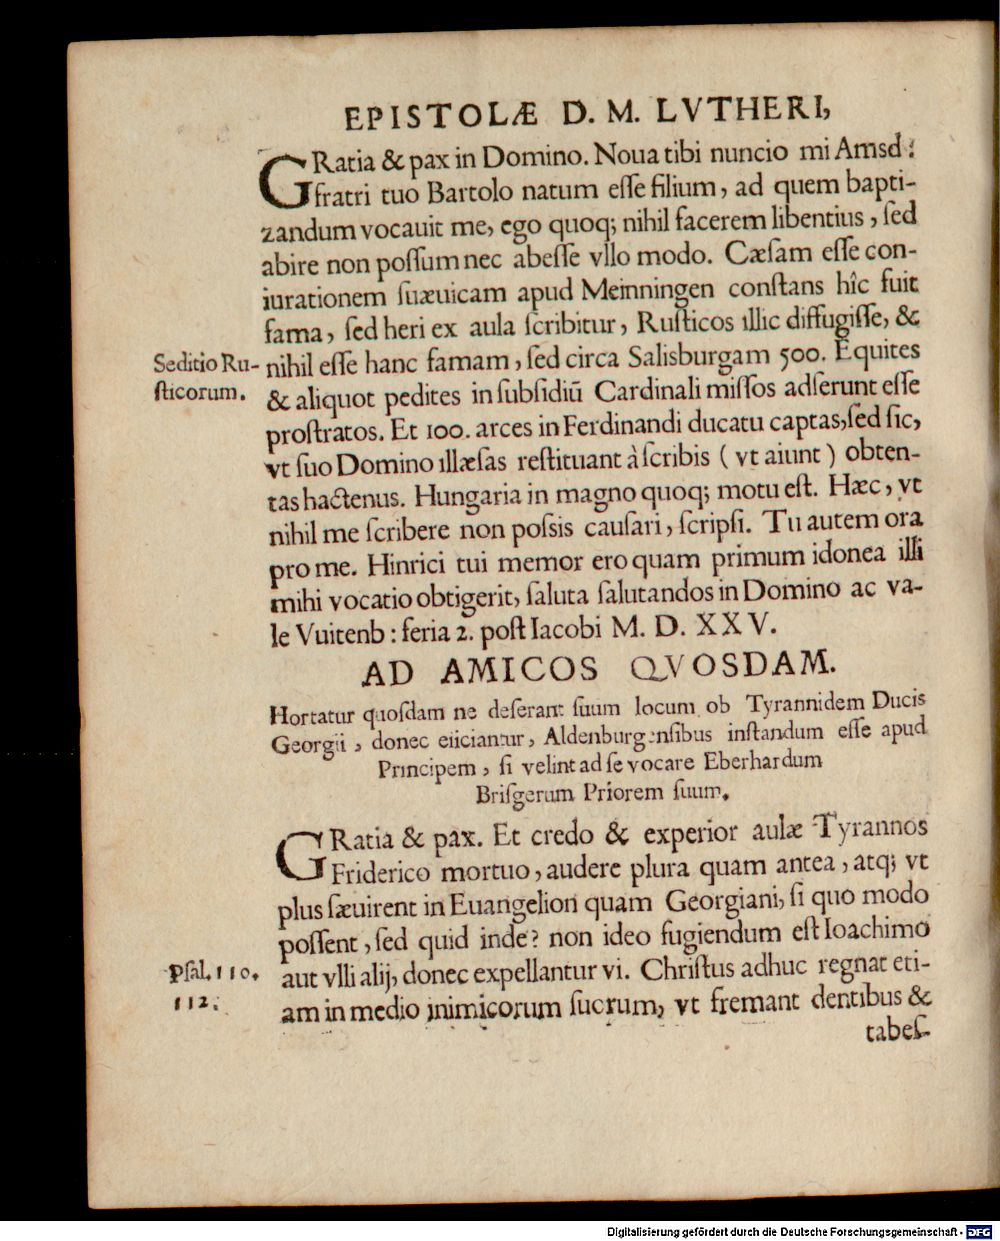 EPISTOLÆ D. M. LVTHERI,
GRatia & pax in Domino. Noua tibi nuncio mi Amsd:
fratri tuo Bartolo natum eſſe filium, ad quem bapti-
zandum vocauit me, ego quoq; nihil facerem libentius, ſed
abire non poſſum nec abeſſe vllo modo. Cæſam eſſe con-
iurationem ſuæuicam apud Meinningen conſtans hîc fuit
fama, ſed heri ex aula ſcribitur, Ruſticos illic diffugiſſe, &
Seditio Ru-
ſticorum.
nihil eſſe hanc famam, ſed circa Salisburgam 500. Equites
& aliquot pedites in ſubſidiū Cardinali miſſos adſerunt eſſe
proſtratos. Et 100. arces in Ferdinandi ducatu captas, ſed ſic,
vt ſuo Domino illæſas reſtituant à ſcribis ( vt aiunt ) obten-
tas hactenus. Hungaria in magno quoq; motu eſt. Hæc, vt
nihil me ſcribere non poſsis cauſari, ſcripſi. Tu autem ora
pro me. Hinrici tui memor ero quam primum idonea illi
mihi vocatio obtigerit, ſaluta ſalutandos in Domino ac va-
le Vuitenb: feria 2. poſt Iacobi M. D. XXV.
AD AMICOS QVOSDAM.
Hortatur quoſdam ne deſerant ſuum locum ob Tyrannidem Ducis
Georgii, donec eiiciantur, Aldenburgenſibus inſtandum eſſe apud
Principem, ſi velint ad ſe vocare Eberhardum
Briſgerum Priorem ſuum.
GRatia & pax. Et credo & experior aulæ Tyrannos
Friderico mortuo, audere plura quam antea, atq; vt
plus ſæuirent in Euangelion quam Georgiani, ſi quo modo
poſſent, ſed quid inde? non ideo fugiendum eſt Ioachimo
Pſal. 110.
112.
aut vlli alij, donec expellantur vi. Chriſtus adhuc regnat eti-
am in medio inimicorum ſuorum, vt fremant dentibus &
tabeſ-
Digitalisierung gefördert durch die Deutsche Forschungsgemeinschaft - DFG